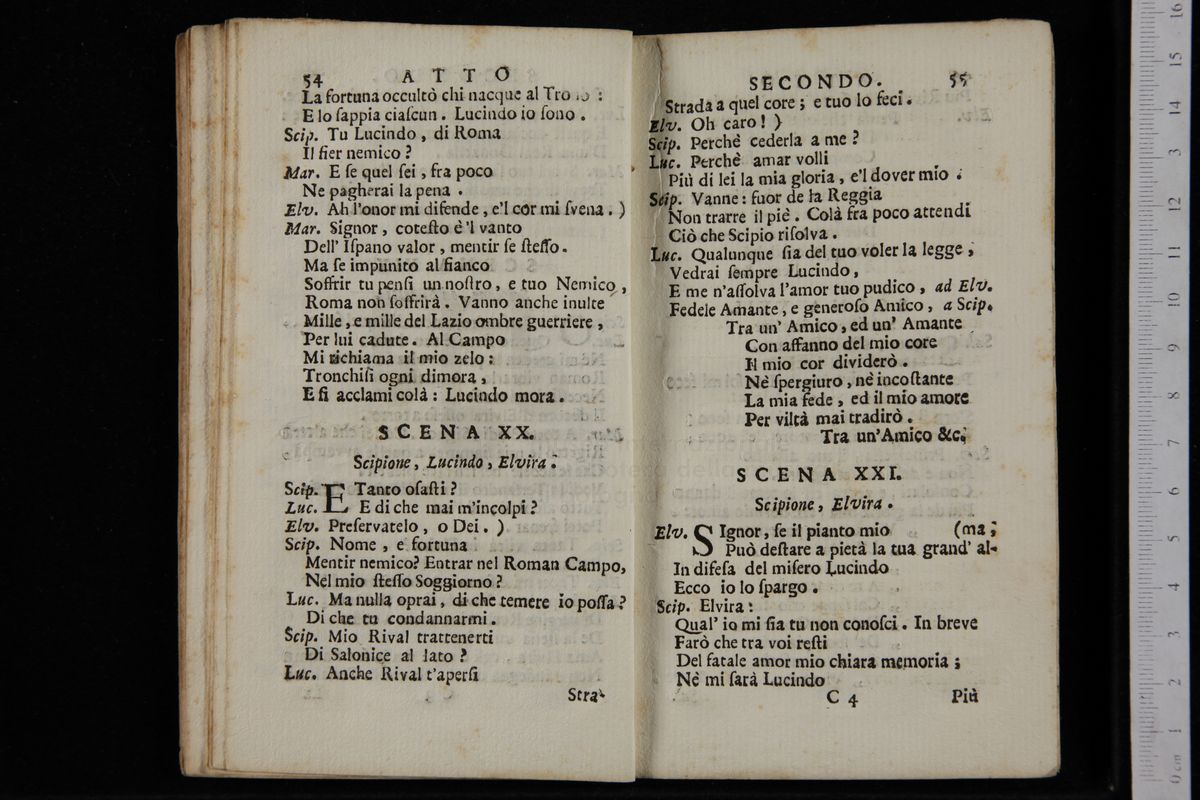 54 ATTO
La fortuna occultò chi nacque al Trono :
E lo ſappia ciaſcun . Lucindo io ſono .
Scip. Tu Lucindo , di Roma
Il fier nemico ?
Mar. E ſe quel ſei , fra poco
Ne pagherai la pena .
Elv. Ah l'onor mi difende , e'l cor mi ſvena . )
Mar. Signor , coteſto è 'l vanto
Dell' Iſpano valor , mentir ſe ſteſſo .
Ma ſe impunito al fianco
Soffrir tu penſi un noſtro , e tuo Nemico ,
Roma non ſoffrirà . Vanno anche inulte
Mille , e mille del Lazio ombre guerriere ,
Per lui cadute . Al Campo
Mi richiama il mio zelo :
Tronchiſi ogni dimora ,
E ſi acclami colà : Lucindo mora .
SCENA XX.
Scipione , Lucindo , Elvira .
Scip. E Tanto oſaſti ?
Luc. E di che mai m'incolpi ?
Elv. Preſervatelo , o Dei . )
Scip. Nome , e fortuna
Mentir nemico? Entrar nel Roman Campo,
Nel mio ſteſſo Soggiorno ?
Luc. Ma nulla oprai , di che temere io poſſa ?
Di che tu condannarmi .
Scip. Mio Rival trattenerti
Di Salonice al lato ?
Luc. Anche Rival t'aperſi
Stra-
SECONDO. 55
Strada a quel core ; e tuo lo feci .
Elv. Oh caro ! )
Scip. Perchè cederla a me ?
Luc. Perchè amar volli
Più di lei la mia gloria , e'l dover mio .
Scip. Vanne : fuor de la Reggia
Non trarre il piè . Colà fra poco attendi
Ciò che Scipio riſolva .
Luc. Qualunque ſia del tuo voler la legge ,
Vedrai ſempre Lucindo ,
E me n'aſſolva l'amor tuo pudico , ad Elv.
Fedele Amante , e generoſo Amico , a Scip.
Tra un' Amico , ed un' Amante
Con affanno del mio core
Il mio cor dividerò .
Nè ſpergiuro , nè incoſtante
La mia fede , ed il mio amore
Per viltà mai tradirò .
Tra un' Amico &c.
SCENA XXI.
Scipione , Elvira .
Elv. SIgnor , ſe il pianto mio (ma ;
Può deſtare a pietà la tua grand' al-
In difeſa del miſero Lucindo
Ecco io lo ſpargo .
Scip. Elvira :
Qual' io mi ſia tu non conoſci . In breve
Farò che tra voi reſti
Del fatale amor mio chiara memoria ;
Nè mi ſarà Lucindo
C 4 Più
0 cm 1 2 3 4 5 6 7 8 9 10 11 12 13 14 15 16